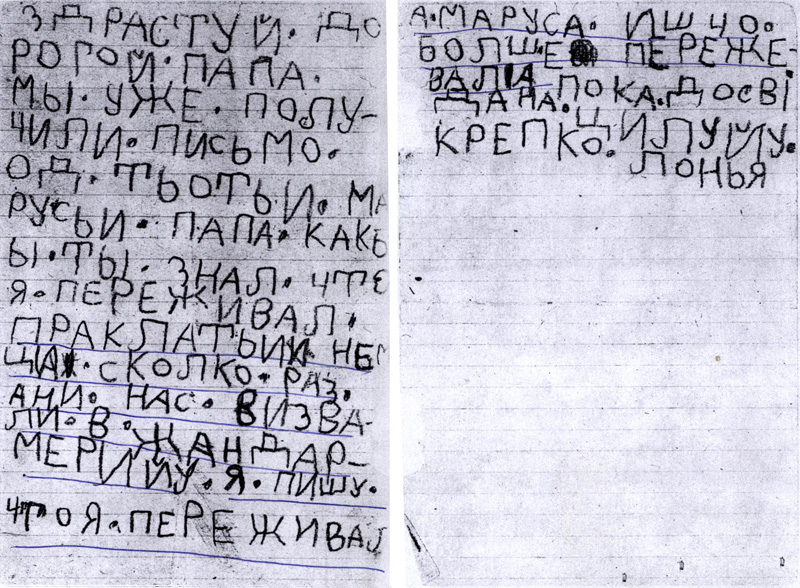 ЗДРАСТУЙ. ДО
РОГОЙ. ПАПА.
МЫ. УЖЕ. ПОЛУ-
ЧИЛИ. ПИСЬМО.
ОД. ТЬОТЬИ. МА
РУСЬИ. ПАПА. КАКБ
Ы. ТЫ. ЗНАЛ. ЧТО
Я. ПЕРЕЖИВАЛ.
ПРАКЛАТЫИ НЕМ
ЦА. СКОЛКО. РАЗ.
АНИ. НАС. ВИЗВА-
ЛИ. В. ЖАНДАР-
МЕРИИУ. Я. ПИШУ.
ЧТО Я. ПЕРЕЖИВАЛ
А. МАРУСА. ИШЧО.
БОЛШЕ ПЕРЕЖЕ-
ВАЛА ПОКА. ДОСВІ
ДАНА.
КРЕПКО. ЦИЛУЙУ.
ЛОНЬЯ